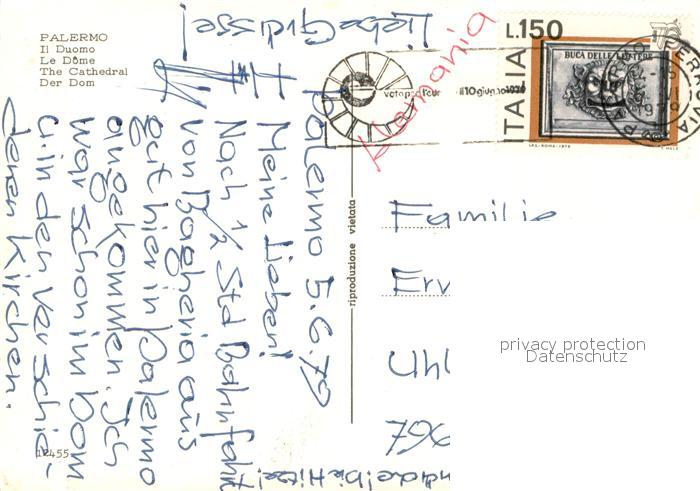 PALERMO
Il Duomo
Le Dôme
The Cathedral
Der Dom
Liebe Grüsse!
Palermo 5.6.79
Meine Lieben!
Nach 1/2 Std Bahnfahrt
von Bagheria aus
gut hier in Palermo
angekommen. Ich
war schon im Dom
u. in den verschie-
denen Kirchen.
12455
die Hitze!
riproduzione vietata
Romania
il 10 giugno 1979
L.150
ITALIA
BUCA DELLE LETTERE
I.P.S.-ROMA-1976
PALERMO FERROVIA
Familie
Erv
Uhl
796
privacy protection
Datenschutz